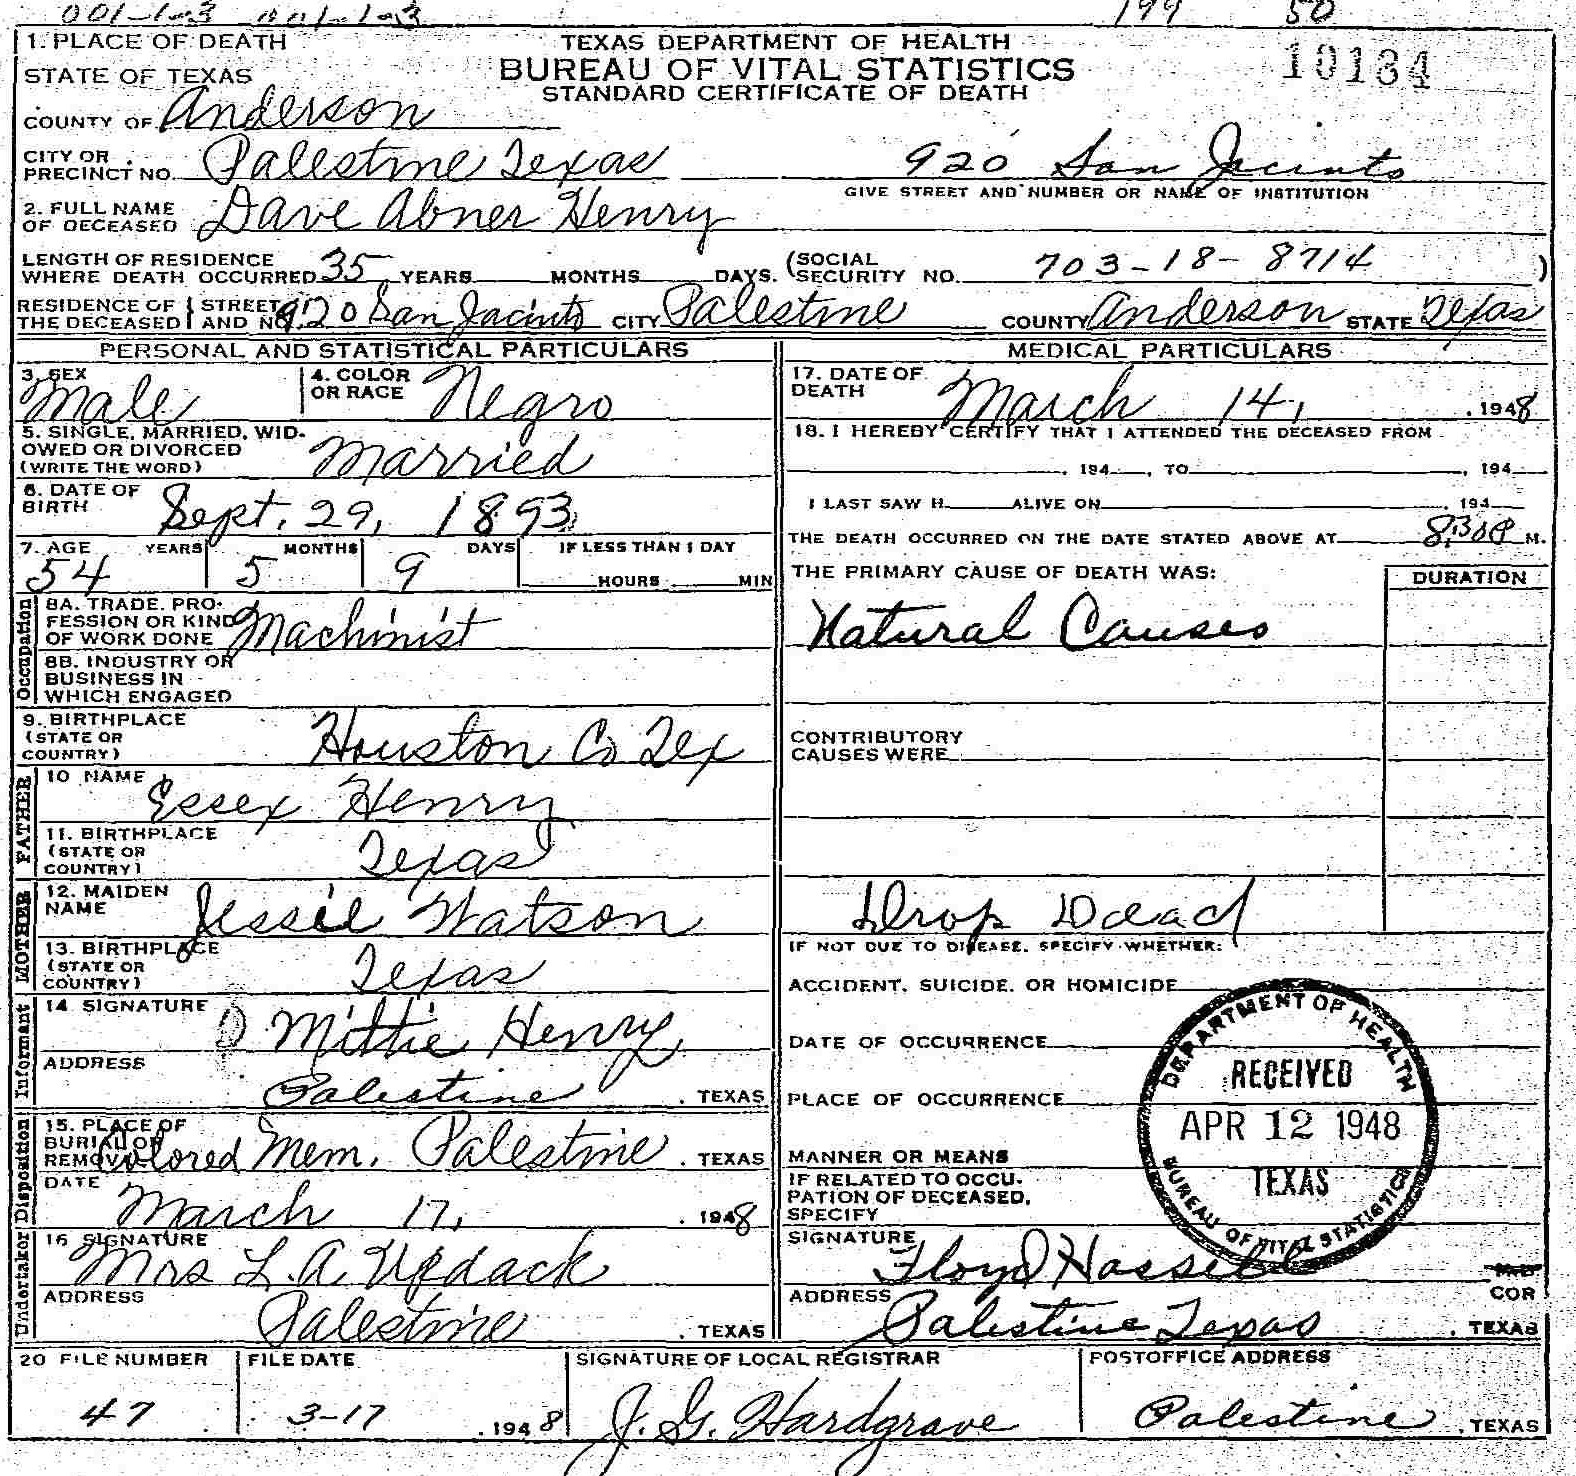 001-1-3 001-1-3 199 50
1. PLACE OF DEATH
STATE OF TEXAS
TEXAS DEPARTMENT OF HEALTH
BUREAU OF VITAL STATISTICS
STANDARD CERTIFICATE OF DEATH
10134
COUNTY OF Anderson
CITY OR PRECINCT NO. Palestine Texas 920 San Jacinto
GIVE STREET AND NUMBER OR NAME OF INSTITUTION
2. FULL NAME OF DECEASED Dave Abner Henry
LENGTH OF RESIDENCE WHERE DEATH OCCURRED 35 YEARS MONTHS DAYS. (SOCIAL SECURITY NO. 703-18-8714 )
RESIDENCE OF THE DECEASED { STREET AND NO. 920 San Jacinto CITY Palestine COUNTY Anderson STATE Texas
PERSONAL AND STATISTICAL PARTICULARS
3. SEX Male 4. COLOR OR RACE Negro
5. SINGLE, MARRIED, WIDOWED OR DIVORCED (WRITE THE WORD) Married
6. DATE OF BIRTH Sept. 29, 1893
7. AGE YEARS MONTHS DAYS IF LESS THAN 1 DAY
54 5 9 HOURS MIN
Occupation
8A. TRADE, PROFESSION OR KIND OF WORK DONE Machinist
8B. INDUSTRY OR BUSINESS IN WHICH ENGAGED
9. BIRTHPLACE (STATE OR COUNTRY) Houston Co Tex
FATHER
10 NAME Essex Henry
11. BIRTHPLACE (STATE OR COUNTRY) Texas
MOTHER
12. MAIDEN NAME Jessie Watson
13. BIRTHPLACE (STATE OR COUNTRY) Texas
Informant
14. SIGNATURE Mittie Henry
ADDRESS Palestine . TEXAS
Disposition
15. PLACE OF BURIAL OR REMOVAL Colored Mem. Palestine . TEXAS
DATE March 17, . 1948
Undertaker
16 SIGNATURE Mrs L. A. Updack
ADDRESS Palestine . TEXAS
MEDICAL PARTICULARS
17. DATE OF DEATH March 14, , 1948
18. I HEREBY CERTIFY THAT I ATTENDED THE DECEASED FROM
, 194 , TO , 194
I LAST SAW H ALIVE ON , 194
THE DEATH OCCURRED ON THE DATE STATED ABOVE AT 8:30P M.
THE PRIMARY CAUSE OF DEATH WAS: DURATION
Natural Causes
CONTRIBUTORY CAUSES WERE
Drop Dead
IF NOT DUE TO DISEASE, SPECIFY WHETHER:
ACCIDENT, SUICIDE, OR HOMICIDE
DATE OF OCCURRENCE
PLACE OF OCCURRENCE
MANNER OR MEANS
IF RELATED TO OCCUPATION OF DECEASED, SPECIFY
DEPARTMENT OF HEALTH
RECEIVED
APR 12 1948
TEXAS
BUREAU OF VITAL STATISTICS
SIGNATURE Floyd Hassell M.D
COR
ADDRESS Palestine Texas . TEXAS
20 FILE NUMBER FILE DATE SIGNATURE OF LOCAL REGISTRAR POSTOFFICE ADDRESS
47 3-17 . 1948 J. G. Hardgrave Palestine . TEXAS